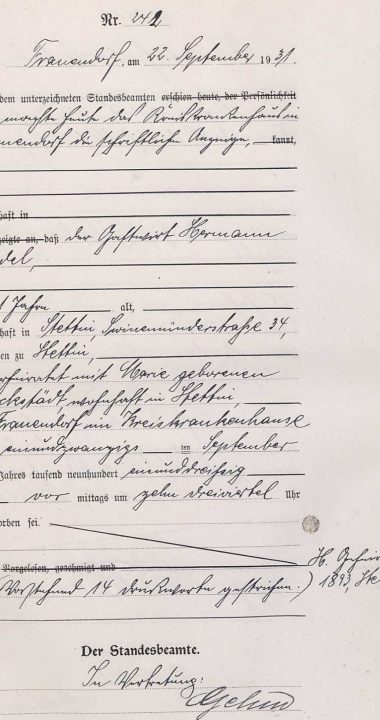 Nr. 242
Frauendorf, am 22. September 1931.
dem unterzeichneten Standesbeamten erschien heute, der Persönlichkeit
machte heute das Kreiskrankenhaus in
uendorf die schriftliche Anzeige, kannt,
haft in
zeigte an, daß der Gastwirt Hermann
del,
t Jahre alt,
haft in Stettin, Swinemünderstraße 34,
en zu Stettin,
erheiratet mit Marie geborenen
ckstädt, wohnhaft in Stettin,
Frauendorf im Kreiskrankenhause
einundzwanzigs ten September
Jahres tausend neunhundert einunddreißig
vor mittags um zehn dreiviertel Uhr
orben sei.
Vorgelesen, genehmigt und
H.
Vorstehend 14 Druckworte gestrichen.) 1893, Ste
Der Standesbeamte.
In Vertretung: